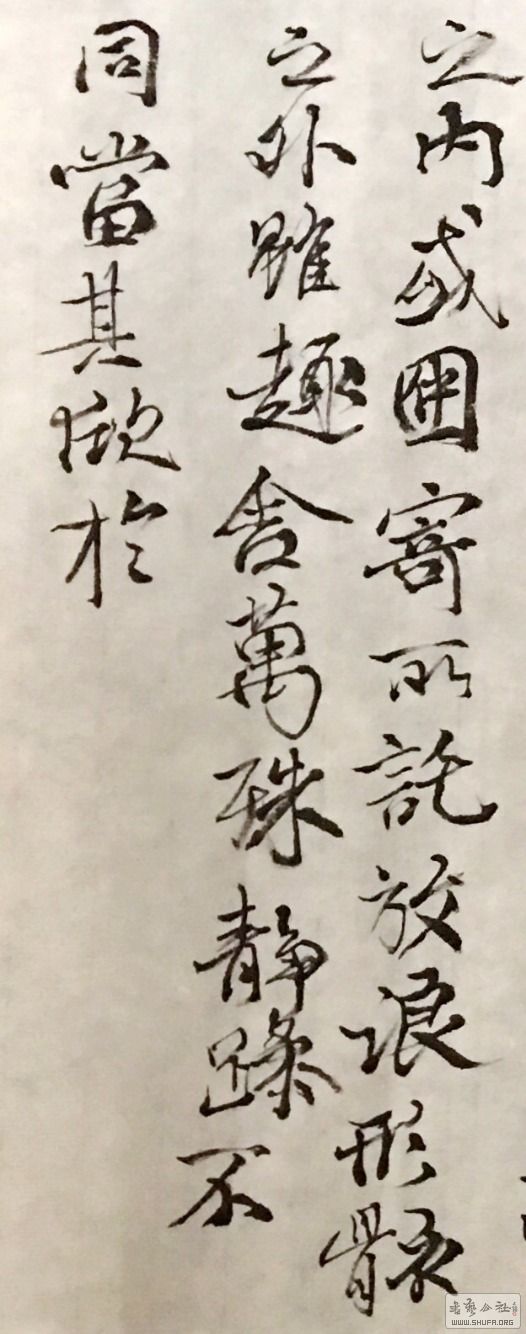 之内或因寄所託放浪形骸
之外雖趣舍萬殊静躁不
同當其欣於
WWW.SHUFA.ORG